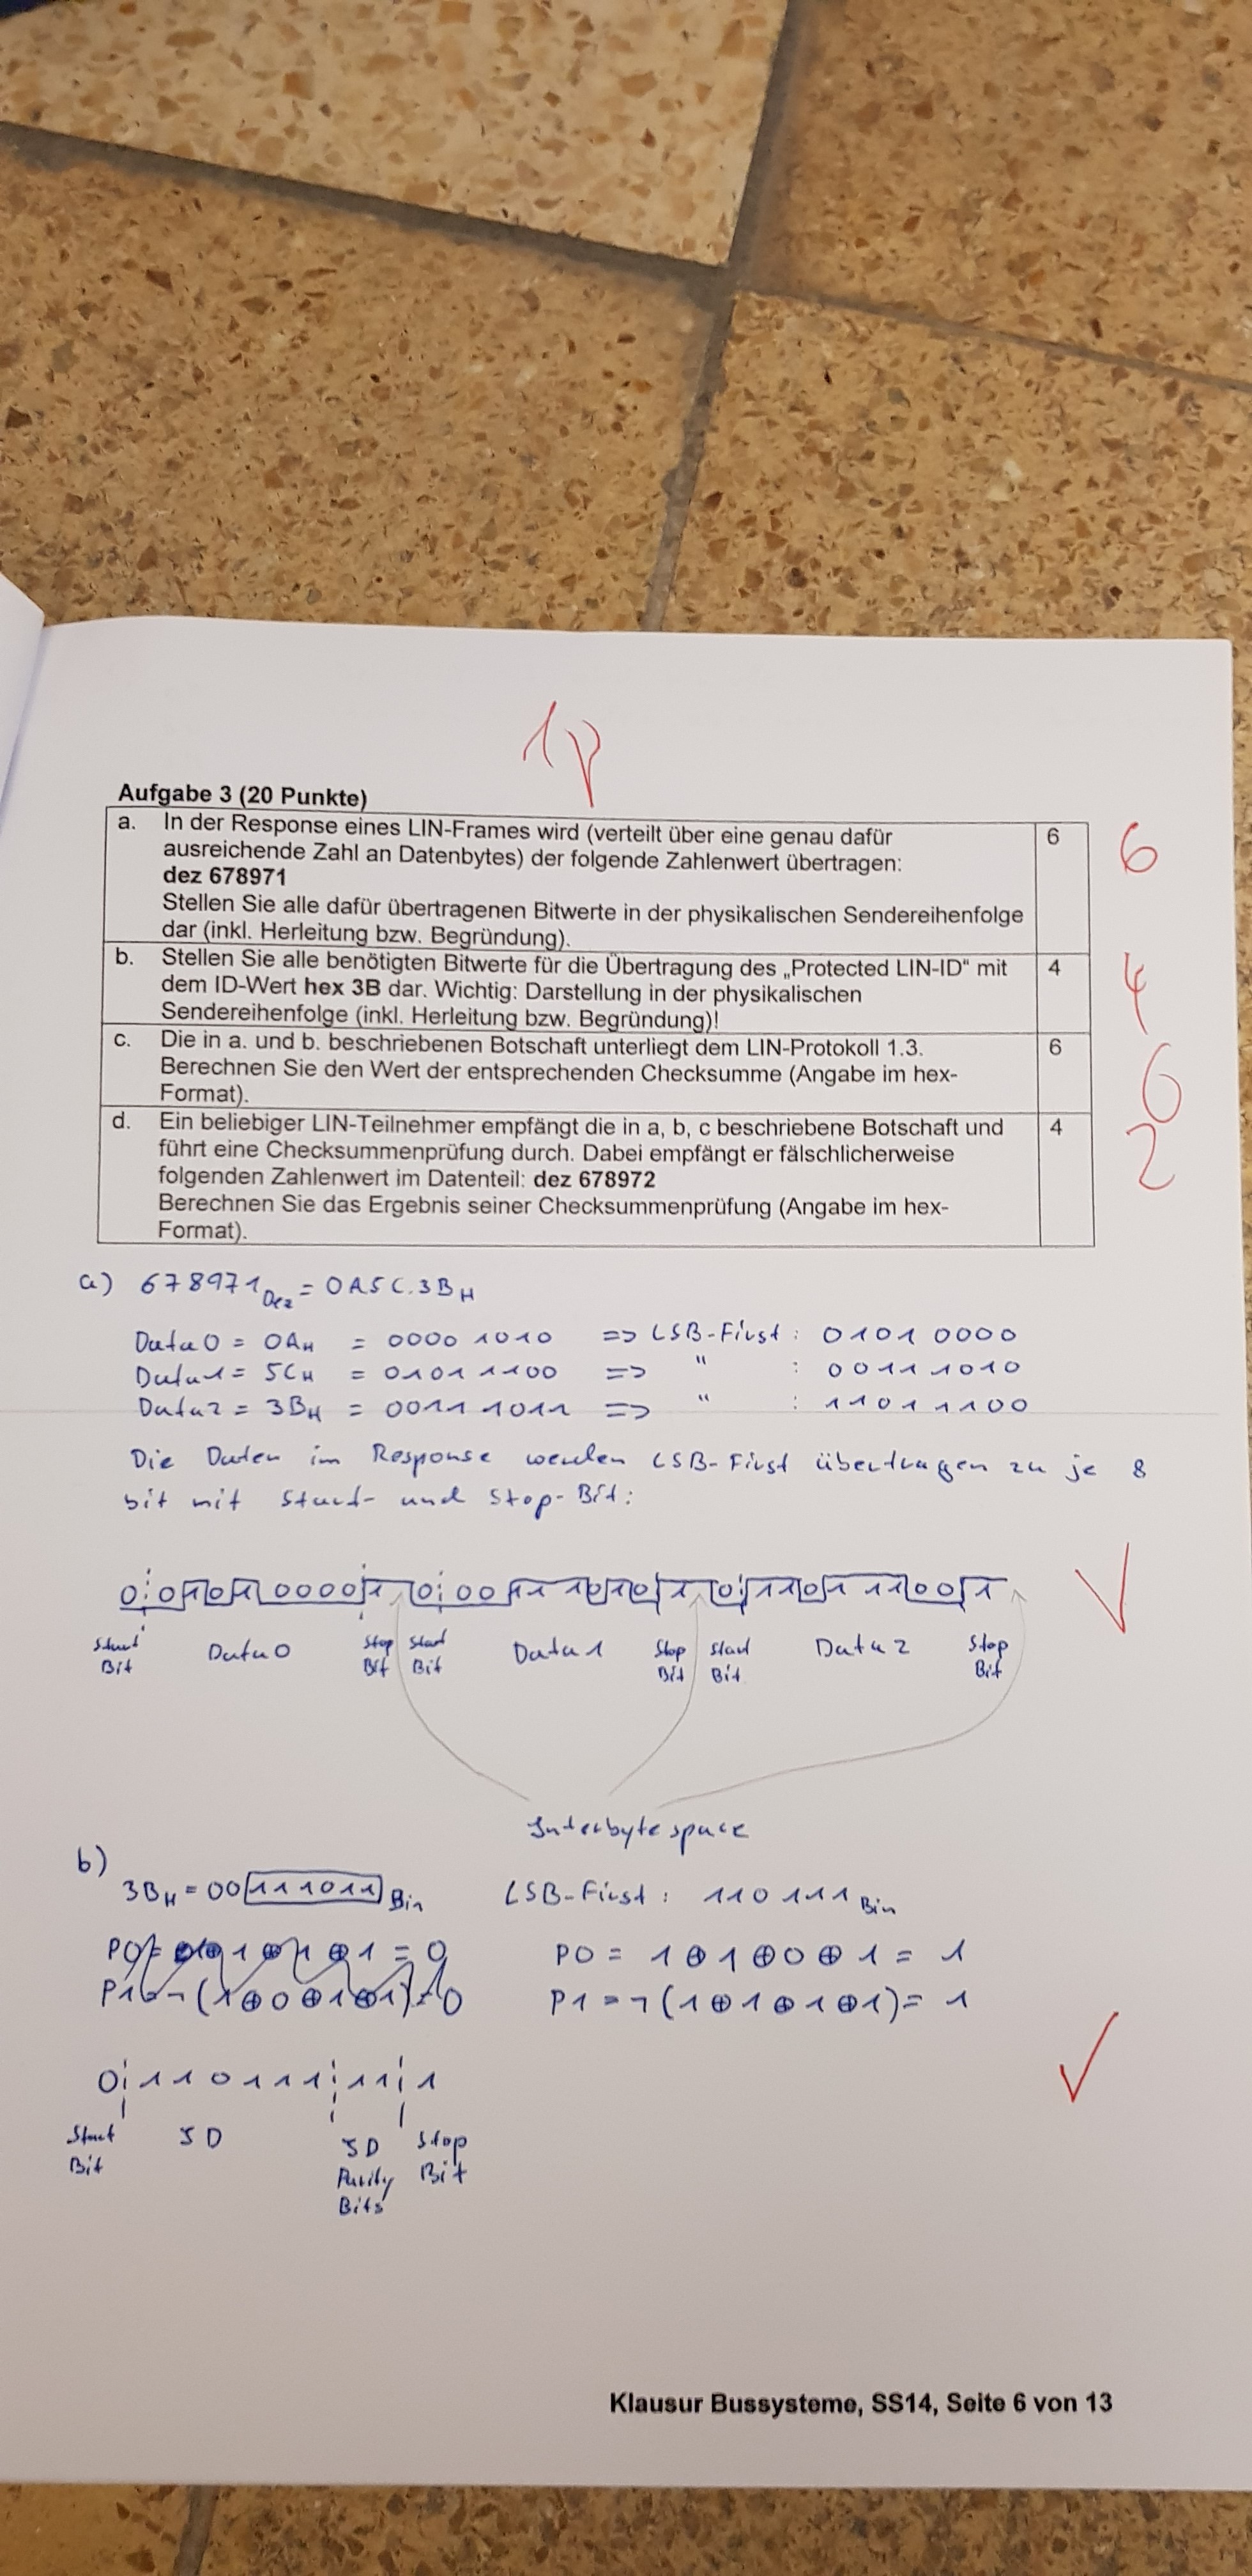 1p
Aufgabe 3 (20 Punkte)
a. In der Response eines LIN-Frames wird (verteilt über eine genau dafür 6 6
ausreichende Zahl an Datenbytes) der folgende Zahlenwert übertragen:
dez 678971
Stellen Sie alle dafür übertragenen Bitwerte in der physikalischen Sendereihenfolge
dar (inkl. Herleitung bzw. Begründung).
b. Stellen Sie alle benötigten Bitwerte für die Übertragung des „Protected LIN-ID“ mit 4 4
dem ID-Wert hex 3B dar. Wichtig: Darstellung in der physikalischen
Sendereihenfolge (inkl. Herleitung bzw. Begründung)!
c. Die in a. und b. beschriebenen Botschaft unterliegt dem LIN-Protokoll 1.3. 6 6
Berechnen Sie den Wert der entsprechenden Checksumme (Angabe im hex-
Format).
d. Ein beliebiger LIN-Teilnehmer empfängt die in a, b, c beschriebene Botschaft und 4 2
führt eine Checksummenprüfung durch. Dabei empfängt er fälschlicherweise
folgenden Zahlenwert im Datenteil: dez 678972
Berechnen Sie das Ergebnis seiner Checksummenprüfung (Angabe im hex-
Format).
a) 678971 Dez = 0A5C.3B H
Data0 = 0A H = 0000 1010 => LSB-First : 0101 0000
Data1 = 5C H = 0101 1100 => " : 0011 1010
Data2 = 3B H = 0011 1011 => " : 1101 1100
Die Daten im Response werden LSB-First übertragen zu je 8
bit mit Start- und Stop-Bit:
0 0 1 0 1 0 0 0 0 1 0 0 0 1 1 1 0 1 0 1 0 1 1 0 1 1 1 0 0 1
Start Bit Data0 Stop Bit Start Bit Data1 Stop Bit Start Bit Data2 Stop Bit
Interbytespace
b)
3B H = 00 111011 Bin LSB-First : 110 111 Bin
P0 = 1 ⊕ 1 ⊕ 0 ⊕ 1 = 1
P1 = ¬(1 ⊕ 1 ⊕ 1 ⊕ 1) = 1
0 1 1 0 1 1 1 1 1 1
Start Bit ID ID Parity Bits Stop Bit
Klausur Bussysteme, SS14, Seite 6 von 13